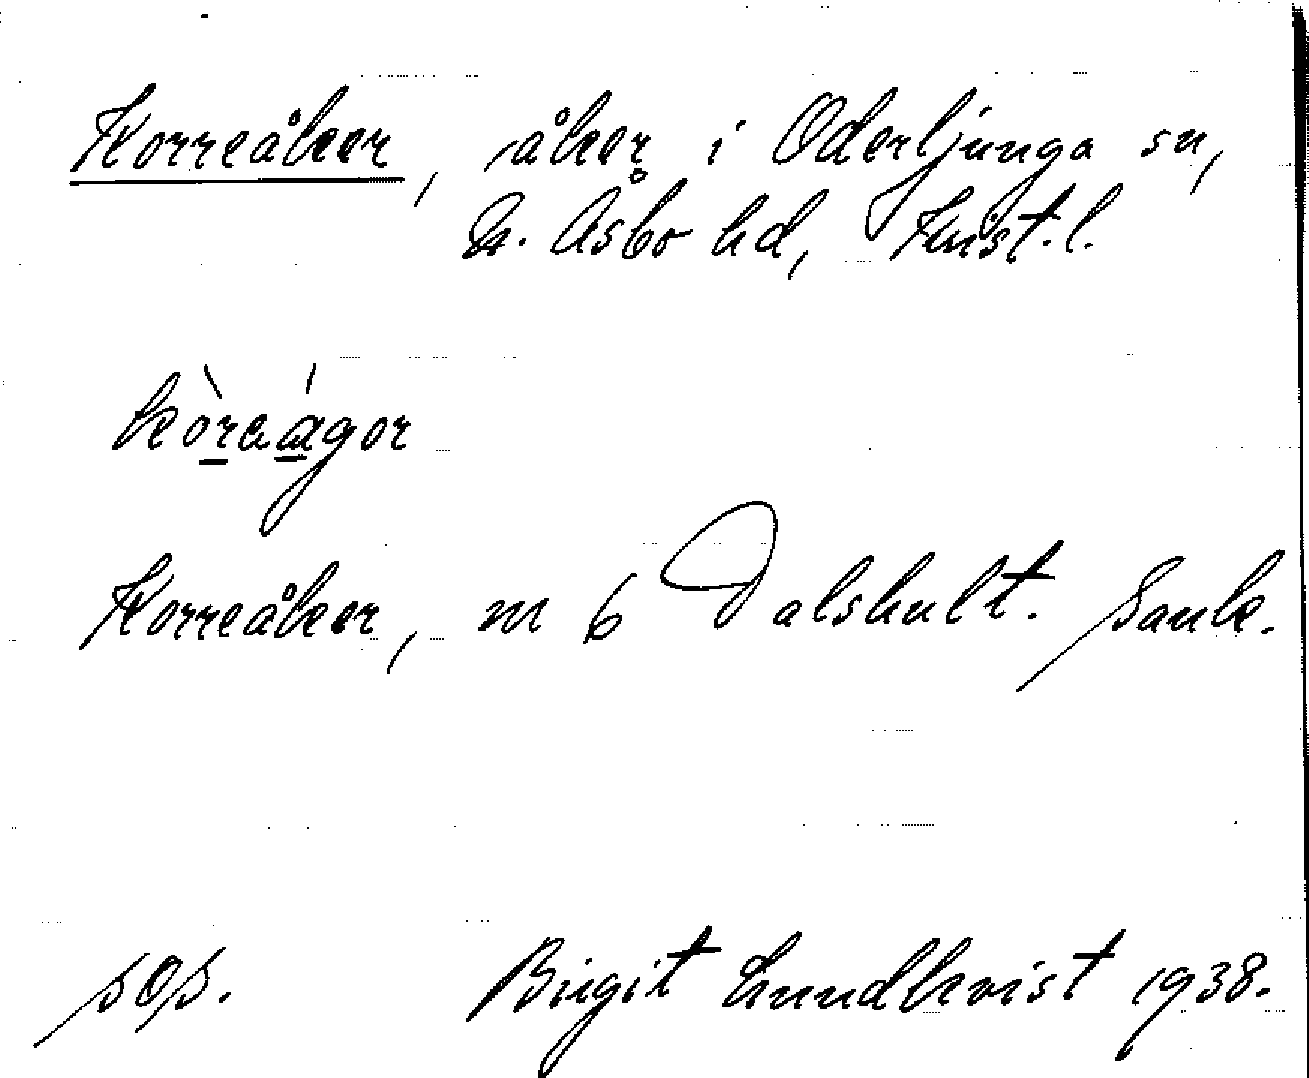 Korreåker, åker i Oderljunga sn,
N. Åsbo hd, Krist. l.
kòraágor
Korreåker, m 6 Dalshult. Sank.
sOs. Birgit Lundkvist 1938.